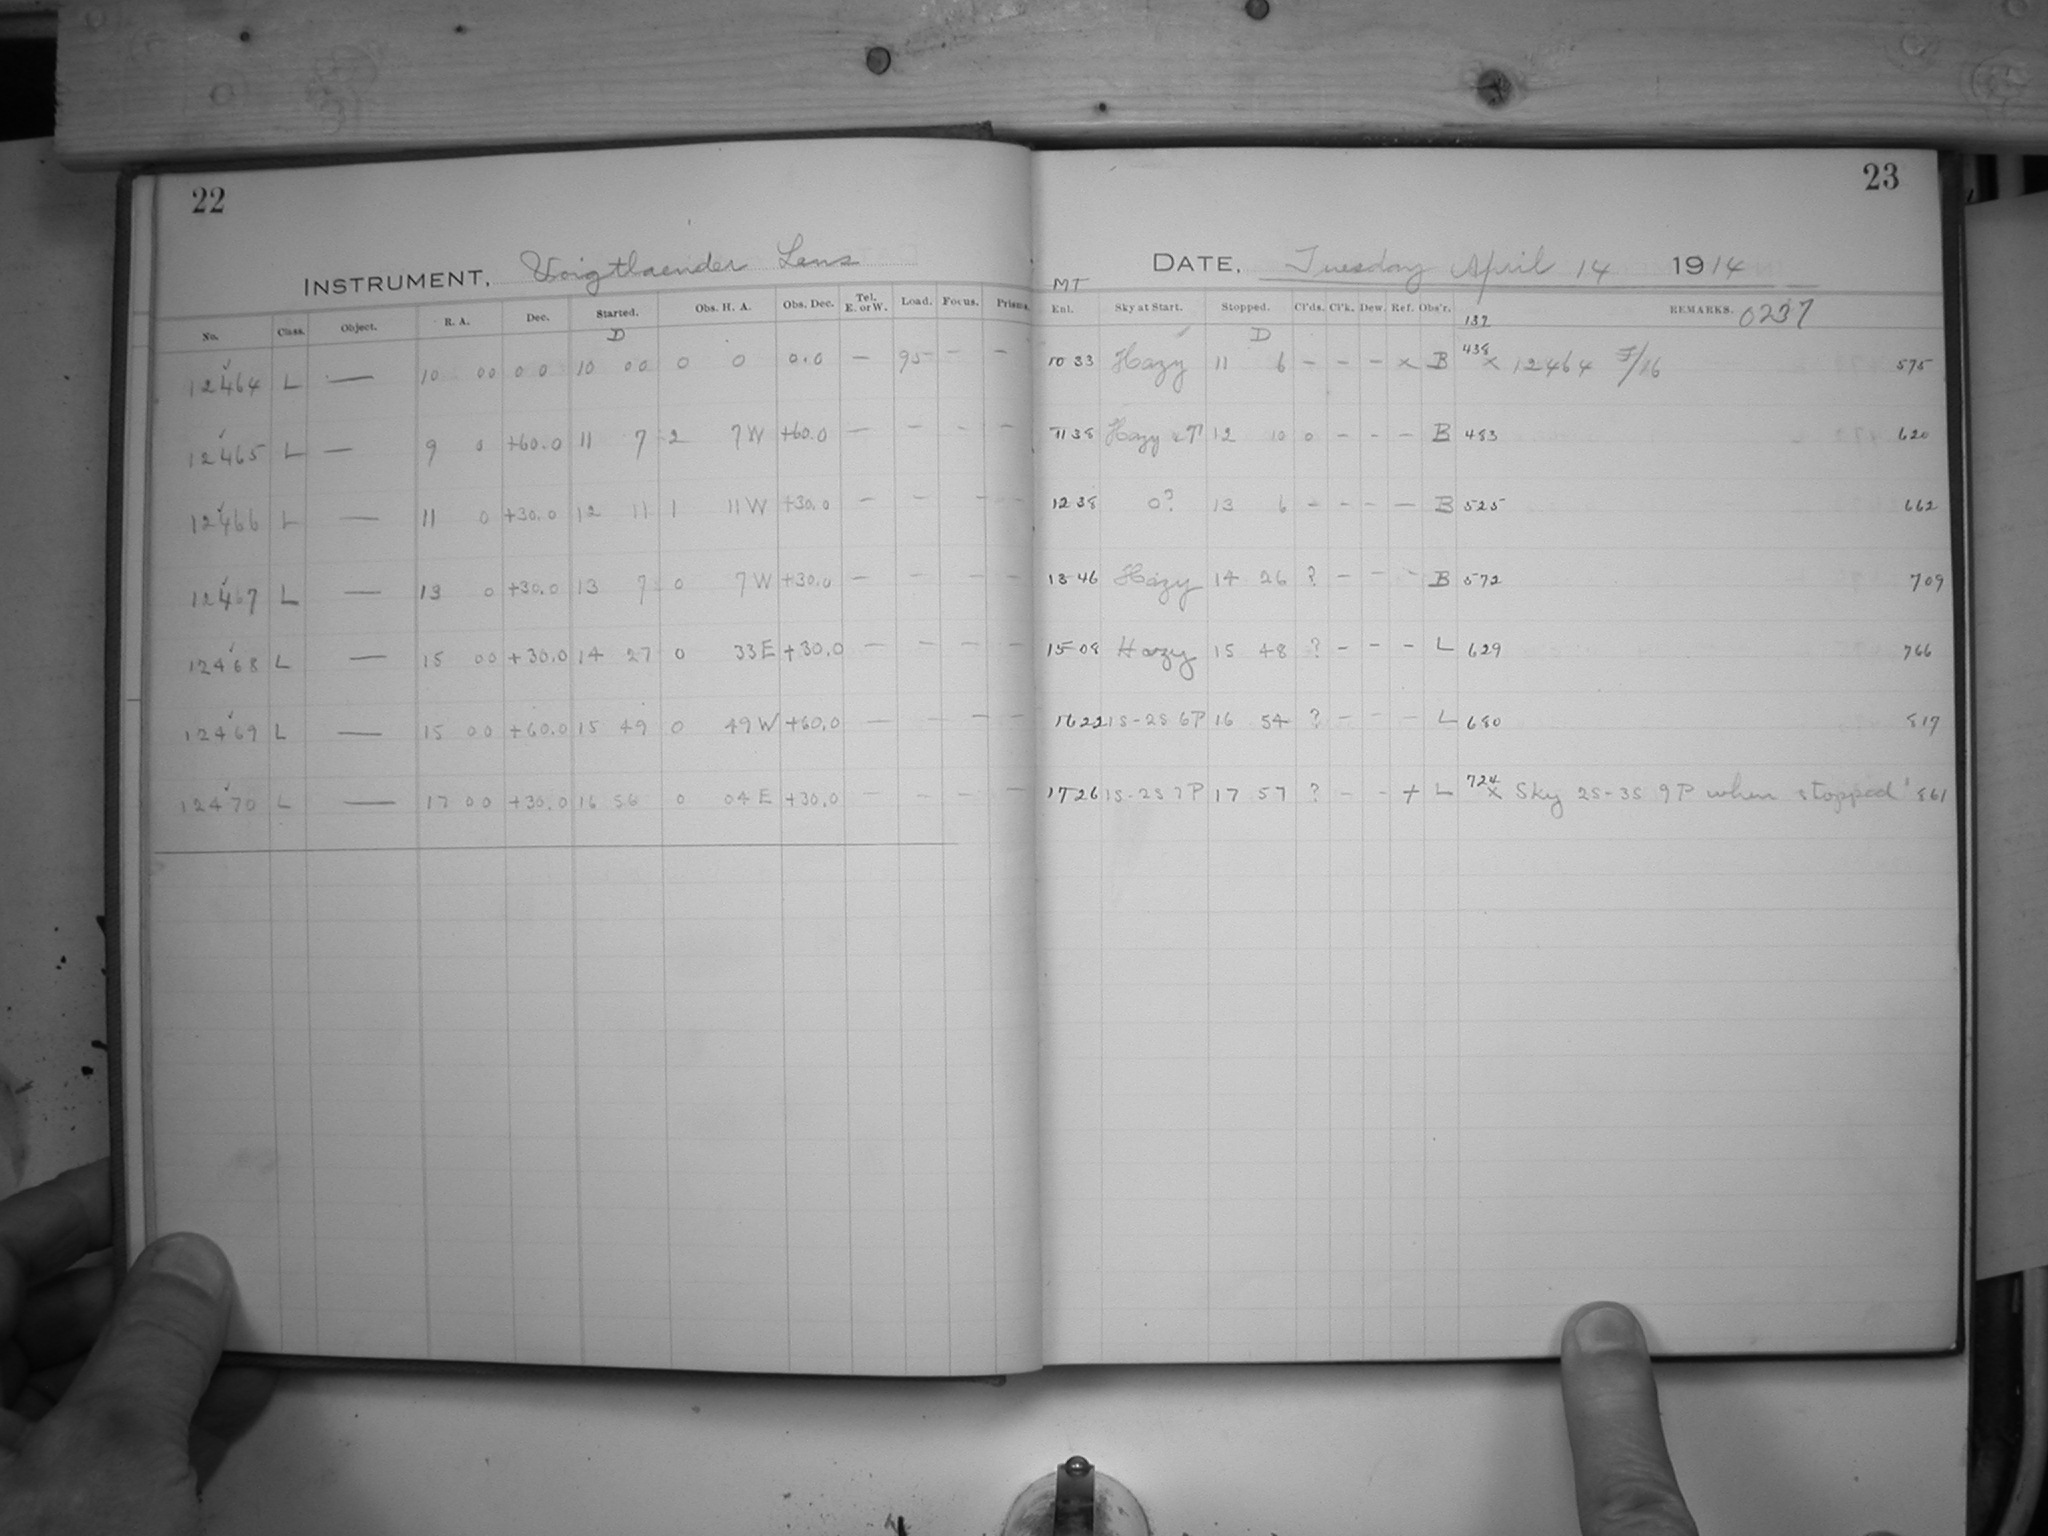 22
INSTRUMENT, Voigtlaender Lens
No. Class. Object. R. A. Dec. Started. Obs. H. A. Obs. Dec. Tel. E. or W. Load. Focus. Prisms.
D
12464 L — 10 00 0 0 10 00 0 0 0.0 — 95 — —
12465 L — 9 0 +60.0 11 7 2 7 W +60.0 — — — —
12466 L — 11 0 +30.0 12 11 1 11 W +30.0 — — — —
12467 L — 13 0 +30.0 13 7 0 7 W +30.0 — — — —
12468 L — 15 00 +30.0 14 27 0 33 E +30.0 — — — —
12469 L — 15 00 +60.0 15 49 0 49 W +60.0 — — — —
12470 L — 17 00 +30.0 16 56 0 04 E +30.0 — — — —
23
DATE, Tuesday April 14 1914
MT
Enl. Sky at Start. Stopped. Cl'ds. Cl'k. Dew. Ref. Obs'r. REMARKS. 0237
D 137
10 33 Hazy 11 6 — — — x B 438 x 12464 F/16 575
11 38 Hazy 12 10 0 — — — B 483 620
12 38 0? 13 6 — — — — B 525 662
13 46 Hazy 14 26 ? — — — B 572 709
15 08 Hazy 15 48 ? — — — L 629 766
16 22 1S-2S 6P 16 54 ? — — — L 680 817
17 26 1S-2S 7P 17 57 ? — — + L 724 x Sky 2S-3S 9P when stopped 861